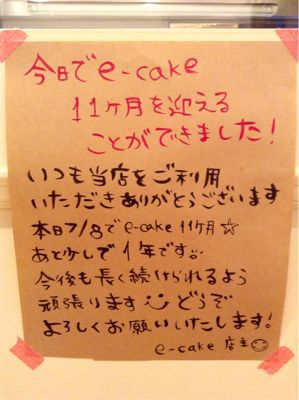 今日でe-cake
11ヶ月を迎える
ことができました!
いつも当店をご利用
いただきありがとうございます
本日7/8でe-cake 11ヶ月☆
あと少しで1年です
今後も長く続けられるよう
頑張ります どうぞ
よろしくお願いいたします!
e-cake 店主